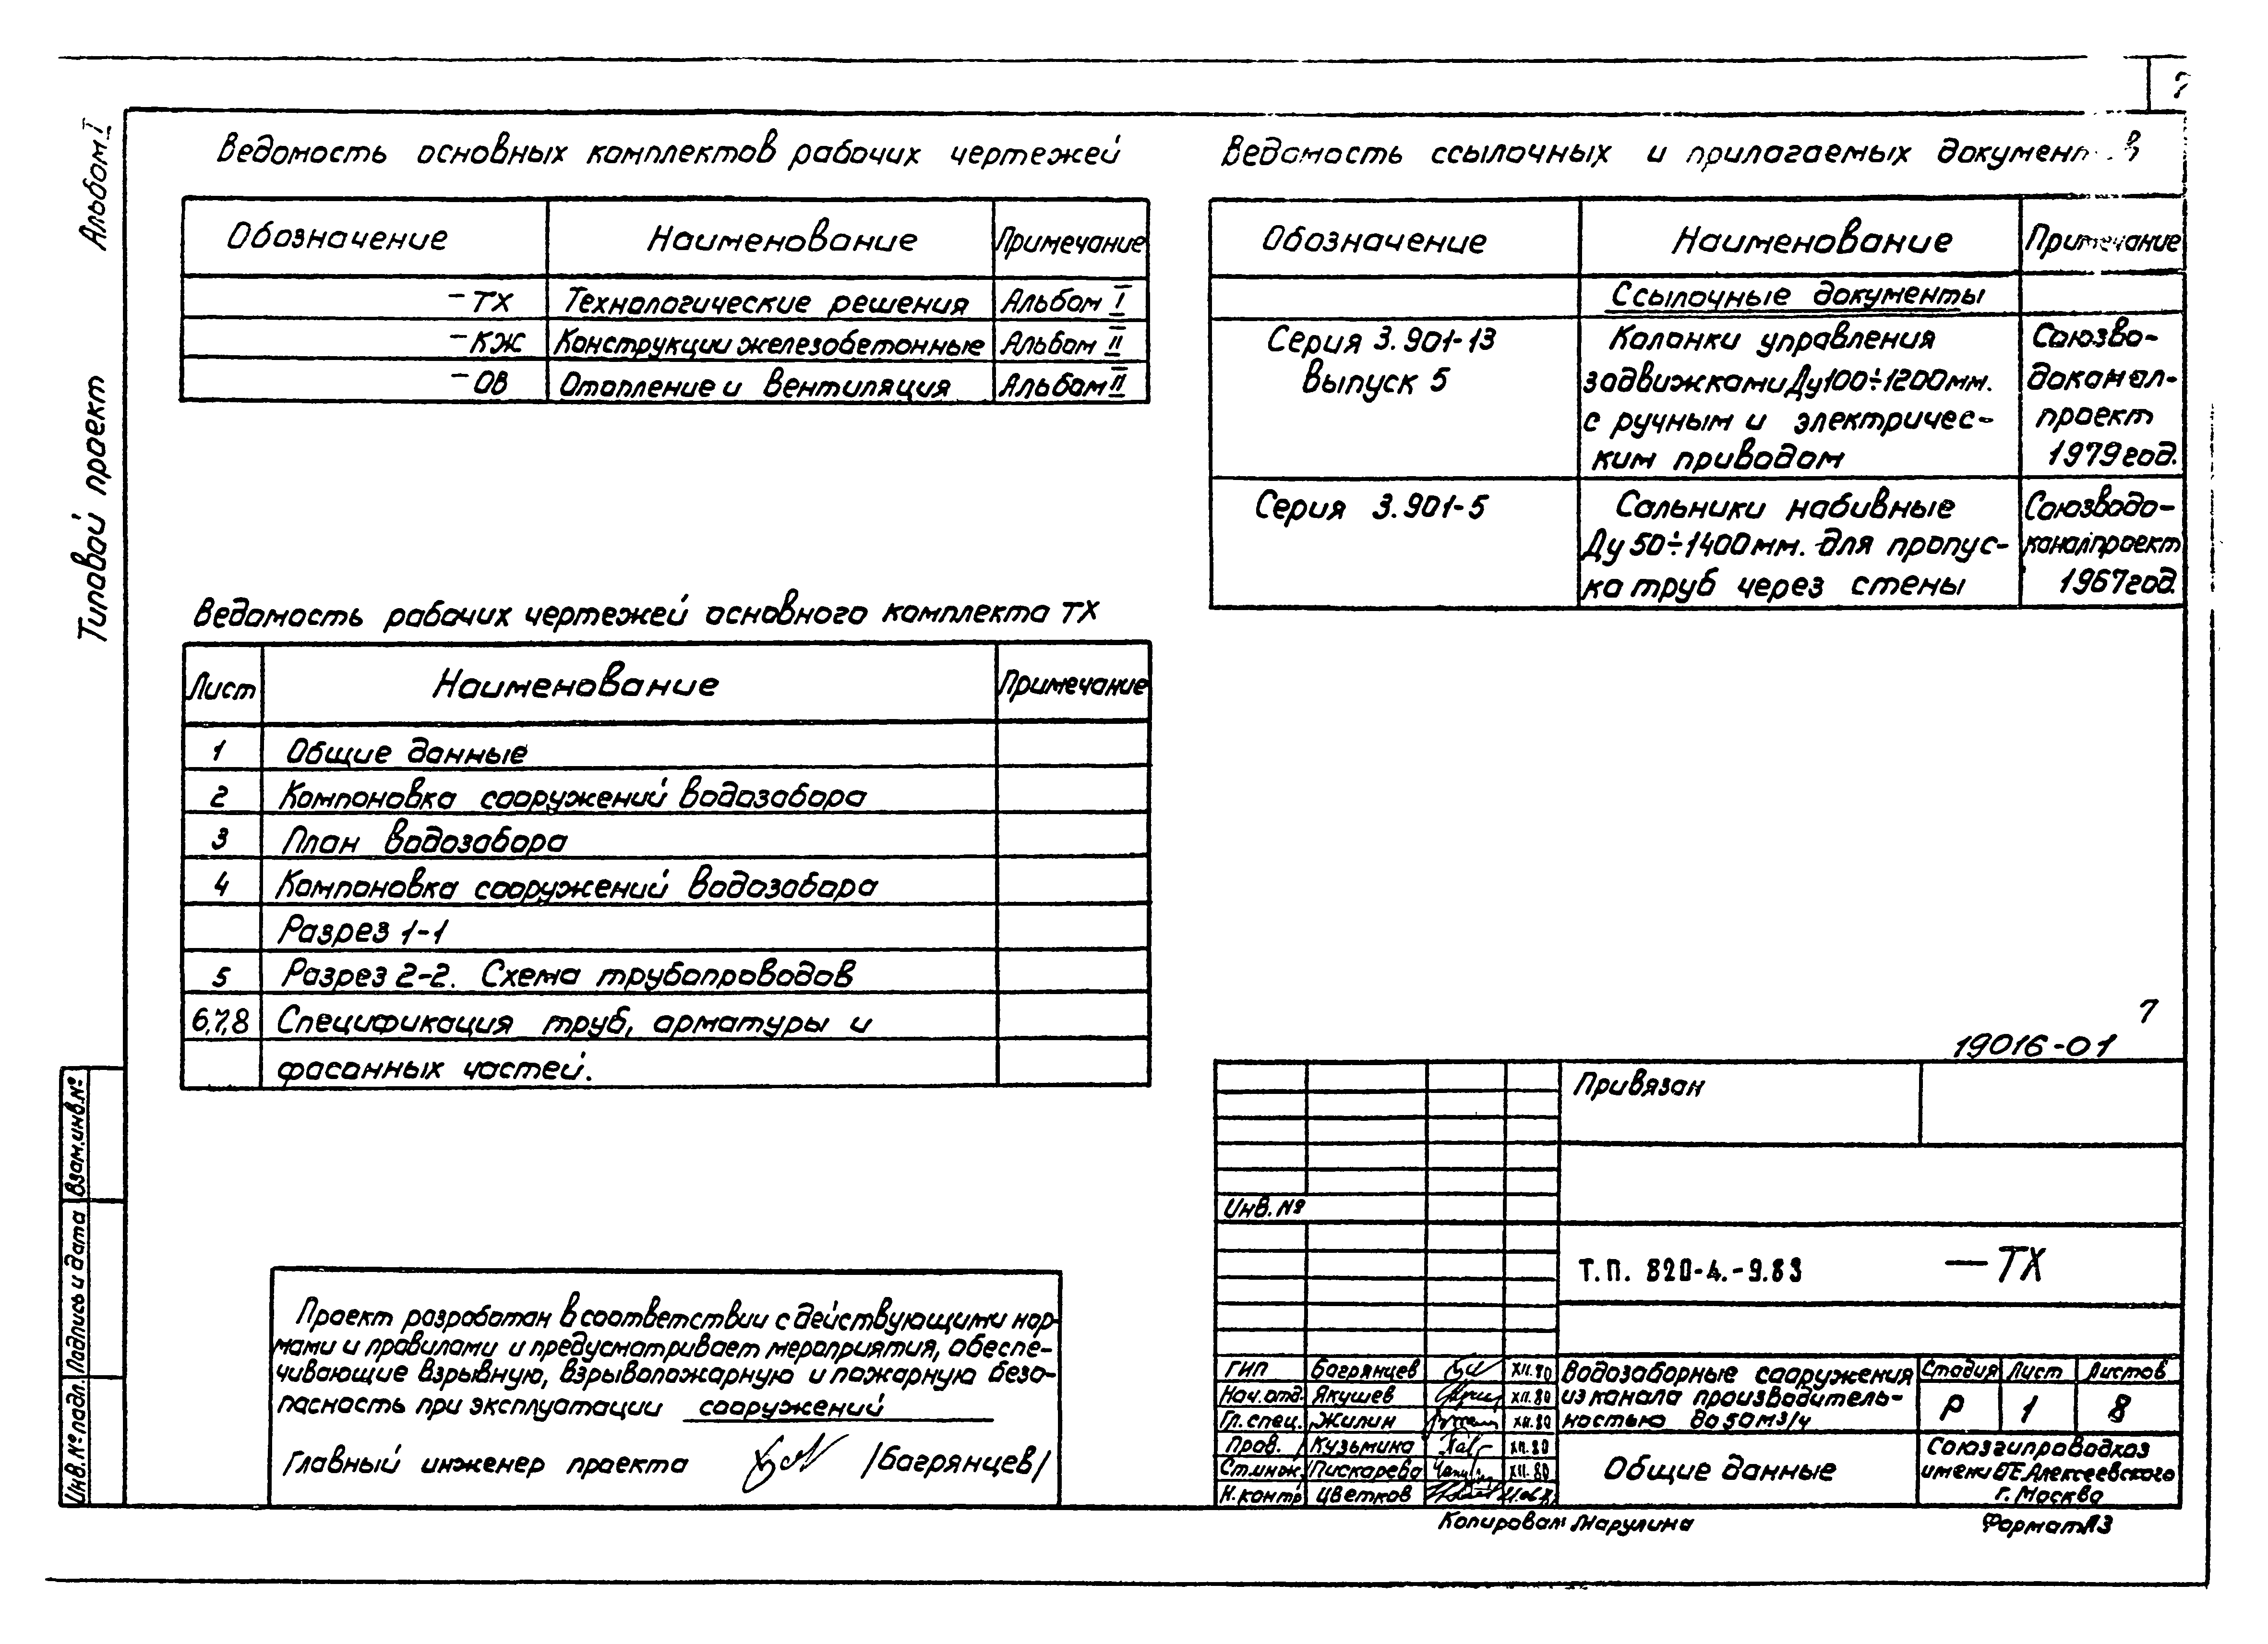 7
Альбом I
Типовой проект
Ведомость основных комплектов рабочих чертежей
Обозначение Наименование Примечание
-ТХ Технологические решения Альбом I
-КЖ Конструкции железобетонные Альбом II
-ОВ Отопление и вентиляция Альбом II
Ведомость рабочих чертежей основного комплекта ТХ
Лист Наименование Примечание
1 Общие данные
2 Компоновка сооружений водозабора
3 План водозабора
4 Компоновка сооружений водозабора
Разрез 1-1
5 Разрез 2-2. Схема трубопроводов
6,7,8 Спецификация труб, арматуры и
фасонных частей.
Ведомость ссылочных и прилагаемых документов
Обозначение Наименование Примечание
Ссылочные документы
Серия 3.901-13 Колонки управления Союзво-
выпуск 5 задвижками Ду100÷1200мм. доканал-
с ручным и электричес- проект
ким приводом 1979год.
Серия 3.901-5 Сальники набивные Союзводо-
Ду 50÷1400мм. для пропус- каналпроект
ка труб через стены 1967год.
Проект разработан в соответствии с действующими нор-
мами и правилами и предусматривает мероприятия, обеспе-
чивающие взрывную, взрывопожарную и пожарную безо-
пасность при эксплуатации сооружений
Главный инженер проекта /Багрянцев/
7
19016-01
Привязан
Инв. №
Т.П. 820-4.-9.83 —ТХ
ГИП Багрянцев XII.80
Нач.отд. Якушев XII.80
Гл.спец. Жилин XII.80
Пров. Кузьмина XII.80
Ст.инж. Пискарева XII.80
Н.контр Цветков
Водозаборные сооружения
из канала производитель-
ностью до 50м3/ч
Стадия Лист Листов
Р 1 8
Общие данные
Союзгипроводхоз
имени Е.Е.Алексеевского
г. Москва
Копировал: Марулина Формат А3
Взам.инв.№
Подпись и дата
Инв.№ подл.